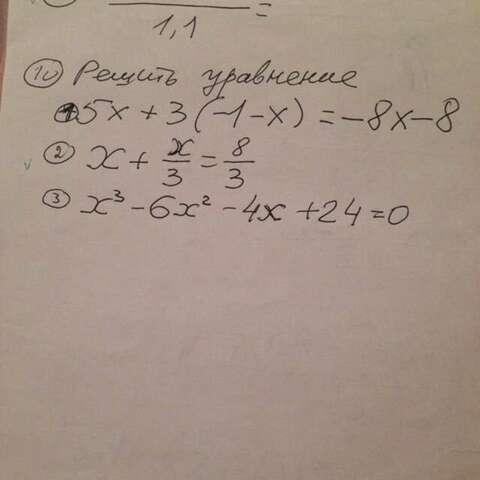 1,1 =
10 Решить уравнение
5x + 3(-1-x) = -8x-8
② x + x/3 = 8/3
③ x³ - 6x² - 4x + 24 = 0